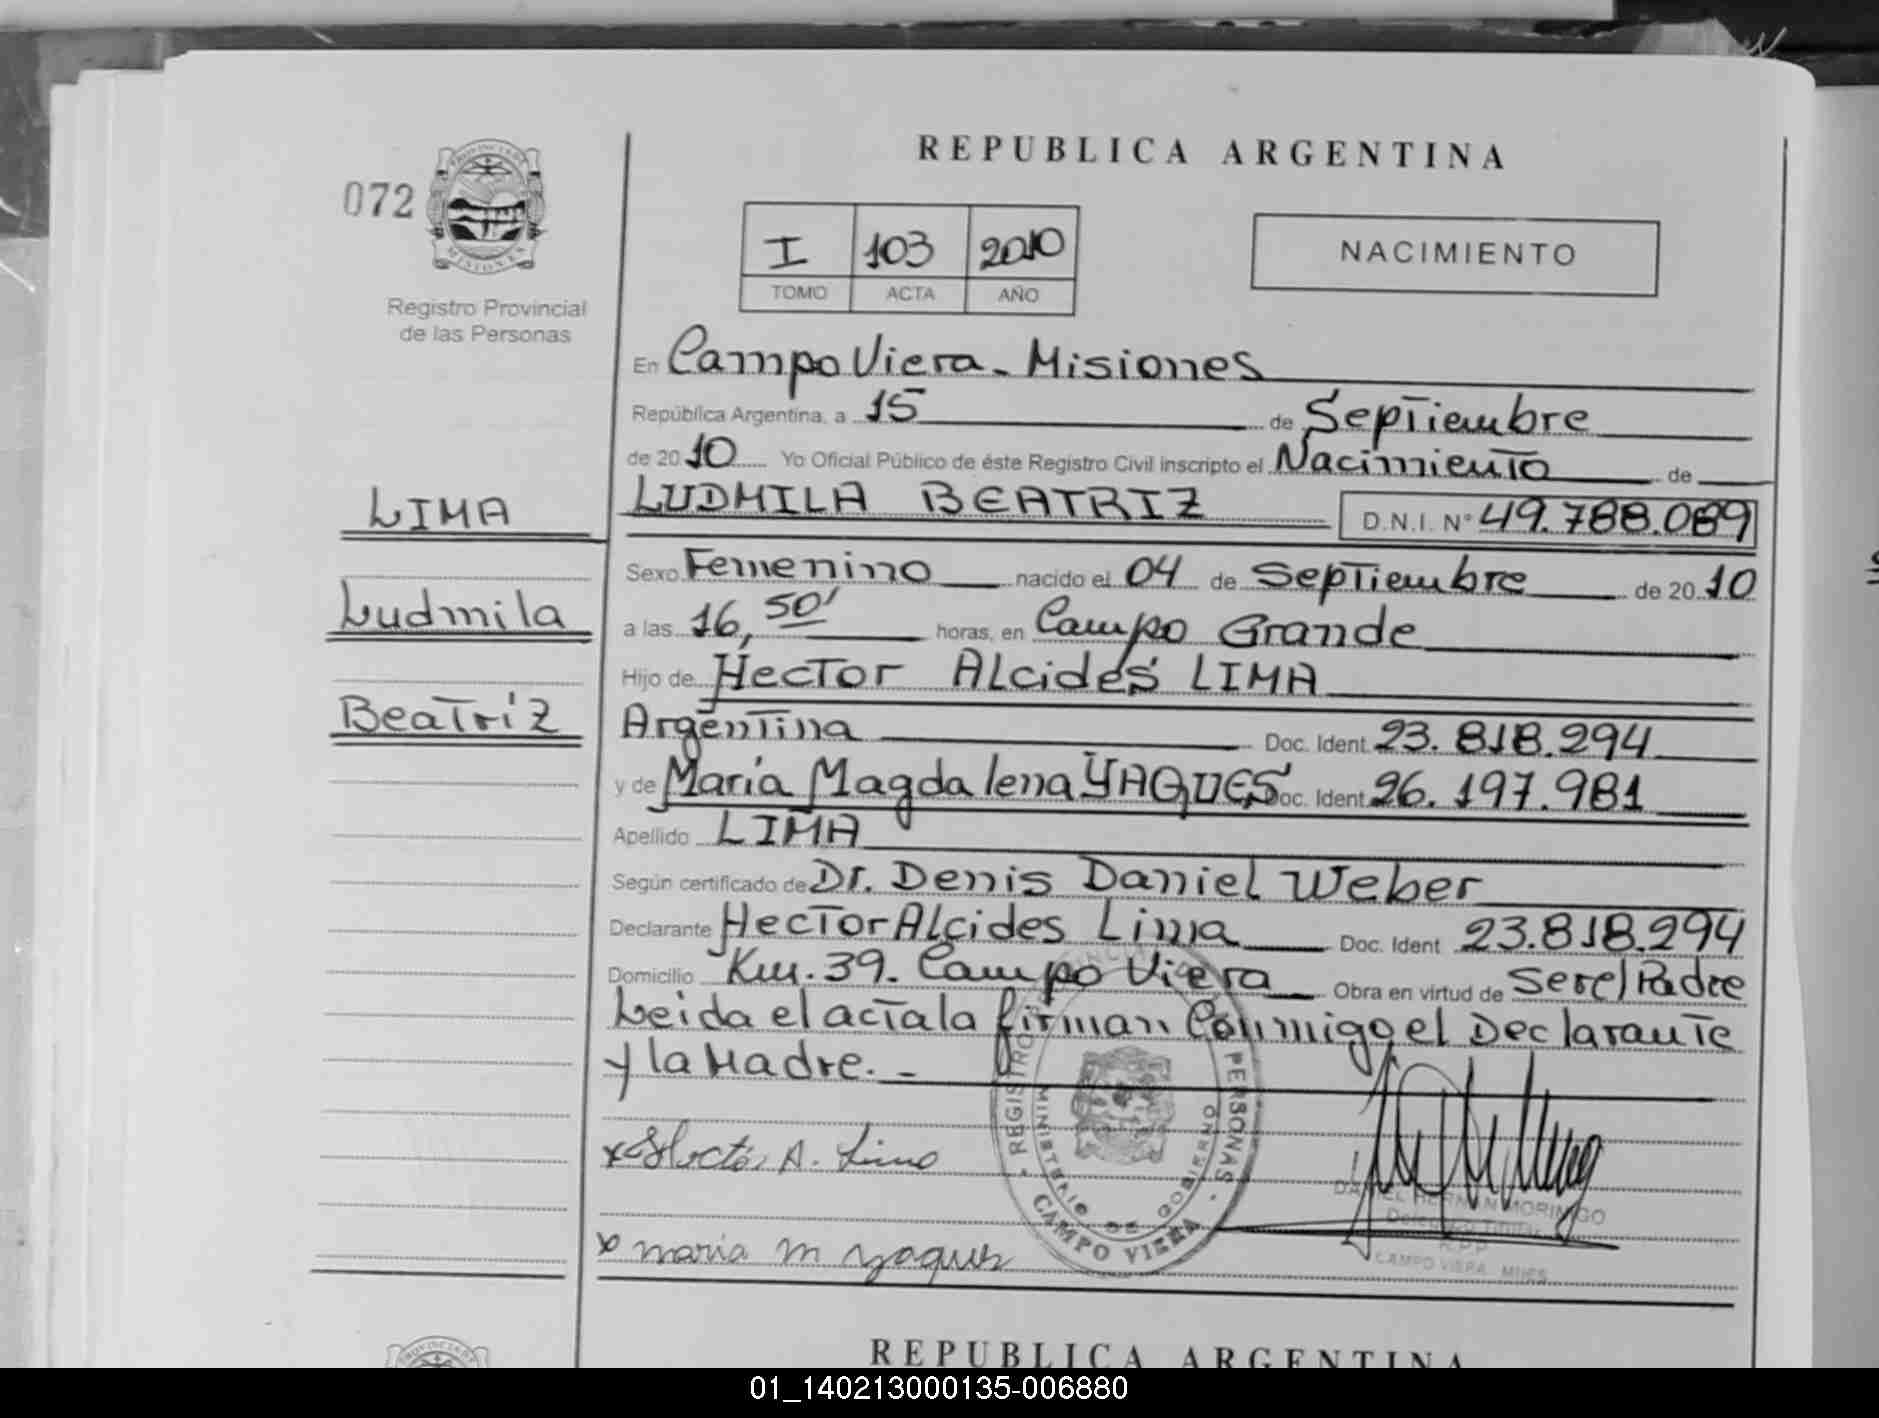 REPUBLICA ARGENTINA
072
PROVINCIA DE MISIONES
Registro Provincial
de las Personas
I 103 2010
TOMO ACTA AÑO
NACIMIENTO
En Campo Viera - Misiones
República Argentina, a 15 de Septiembre
de 2010 Yo Oficial Público de éste Registro Civil inscripto el Nacimiento de
LUDMILA BEATRIZ D.N.I. N° 49.788.089
LIMA
Ludmila
Beatriz
Sexo Femenino nacido el 04 de Septiembre de 2010
a las 16, 50' horas, en Campo Grande
Hijo de Hector Alcides LIMA
Argentina Doc. Ident. 23.818.294
y de Maria Magdalena YAQUES Doc. Ident. 26.197.981
Apellido LIMA
Según certificado de Dr. Denis Daniel Weber
Declarante Hector Alcides Lima Doc. Ident 23.818.294
Domicilio Km. 39. Campo Viera Obra en virtud de Ser el Padre
Leida el acta la firman Conmigo el Declarante
y la Madre. -
x Hector A. Lima
x maria m yaques
REGISTRO PROVINCIAL DE PERSONAS
MINISTERIO DE GOBIERNO
CAMPO VIERA
DANIEL HERNAN MORINIGO
Delegado Titular
R.P.P.
CAMPO VIERA MNES
REPUBLICA ARGENTINA
01_140213000135-006880